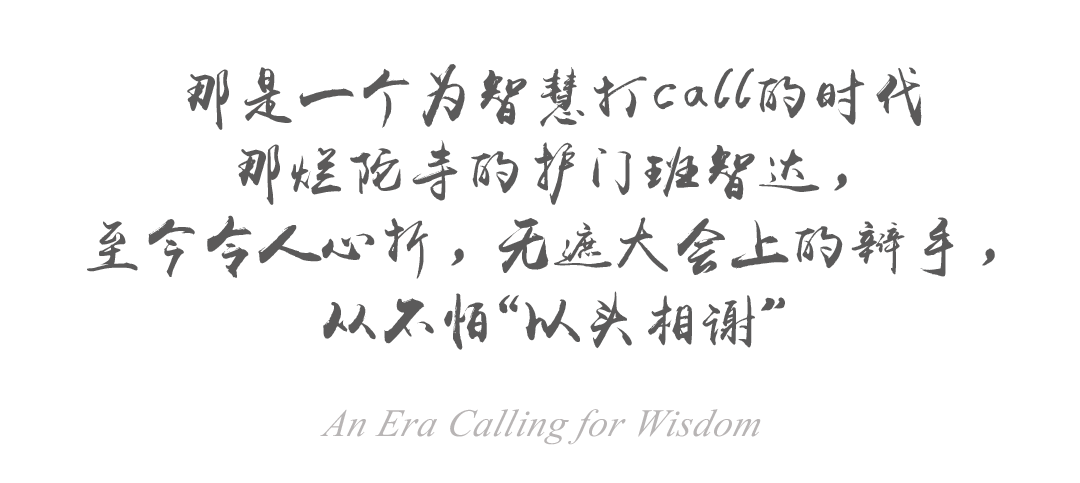 那是一个为智慧打call的时代
那烂陀寺的护门班智达，
至今令人心折，无遮大会上的辩手，
从不怕“以头相谢”
An Era Calling for Wisdom